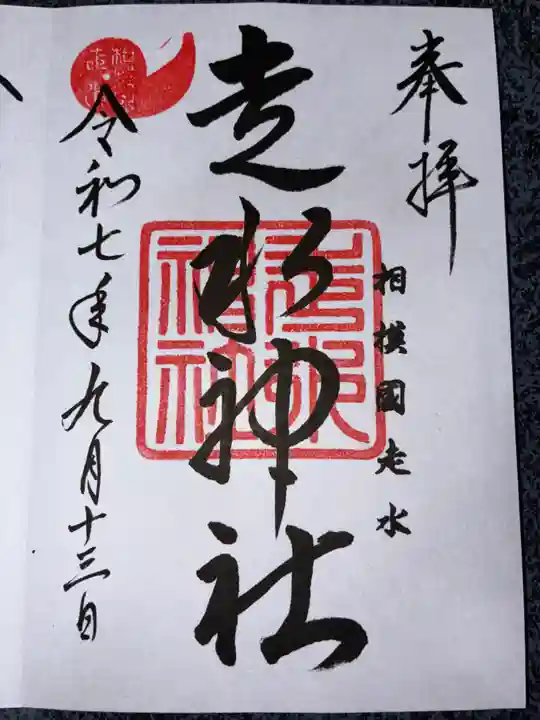 奉拝
相模國走水
走水神社
走水神社
令和七年九月十三日